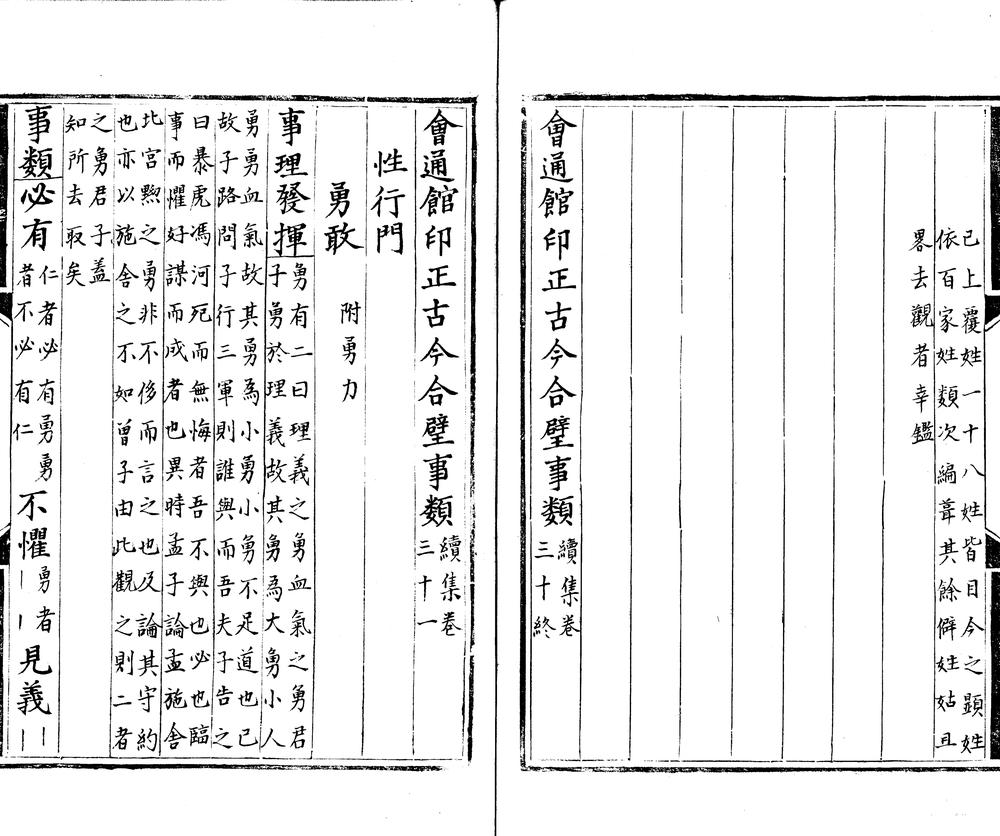 已上覆姓一十八姓皆目今之顯姓
依百家姓類次編葺其餘僻姓姑且
畧去觀者幸鑑
會通館印正古今合璧事類續集卷三十終
會通館印正古今合璧事類續集卷三十一
性行門
勇敢 附勇力
事理發揮 勇有二曰理義之勇血氣之勇君
子勇於理義故其勇為大勇小人
勇勇血氣故其勇為小勇小勇不足道也已
故子路問子行三軍則誰與而吾夫子告之
曰暴虎馮河死而無悔者吾不與也必也臨
事而懼好謀而成者也異時孟子論孟施舍
北宮黝之勇非不侈而言之也及論其守約
也亦以施舍之不如曾子由此觀之則二者
之勇君子蓋
知所去取矣
事類 必有 仁者必有勇勇者不必有仁 不懼 勇者｜｜ 見義 ｜｜